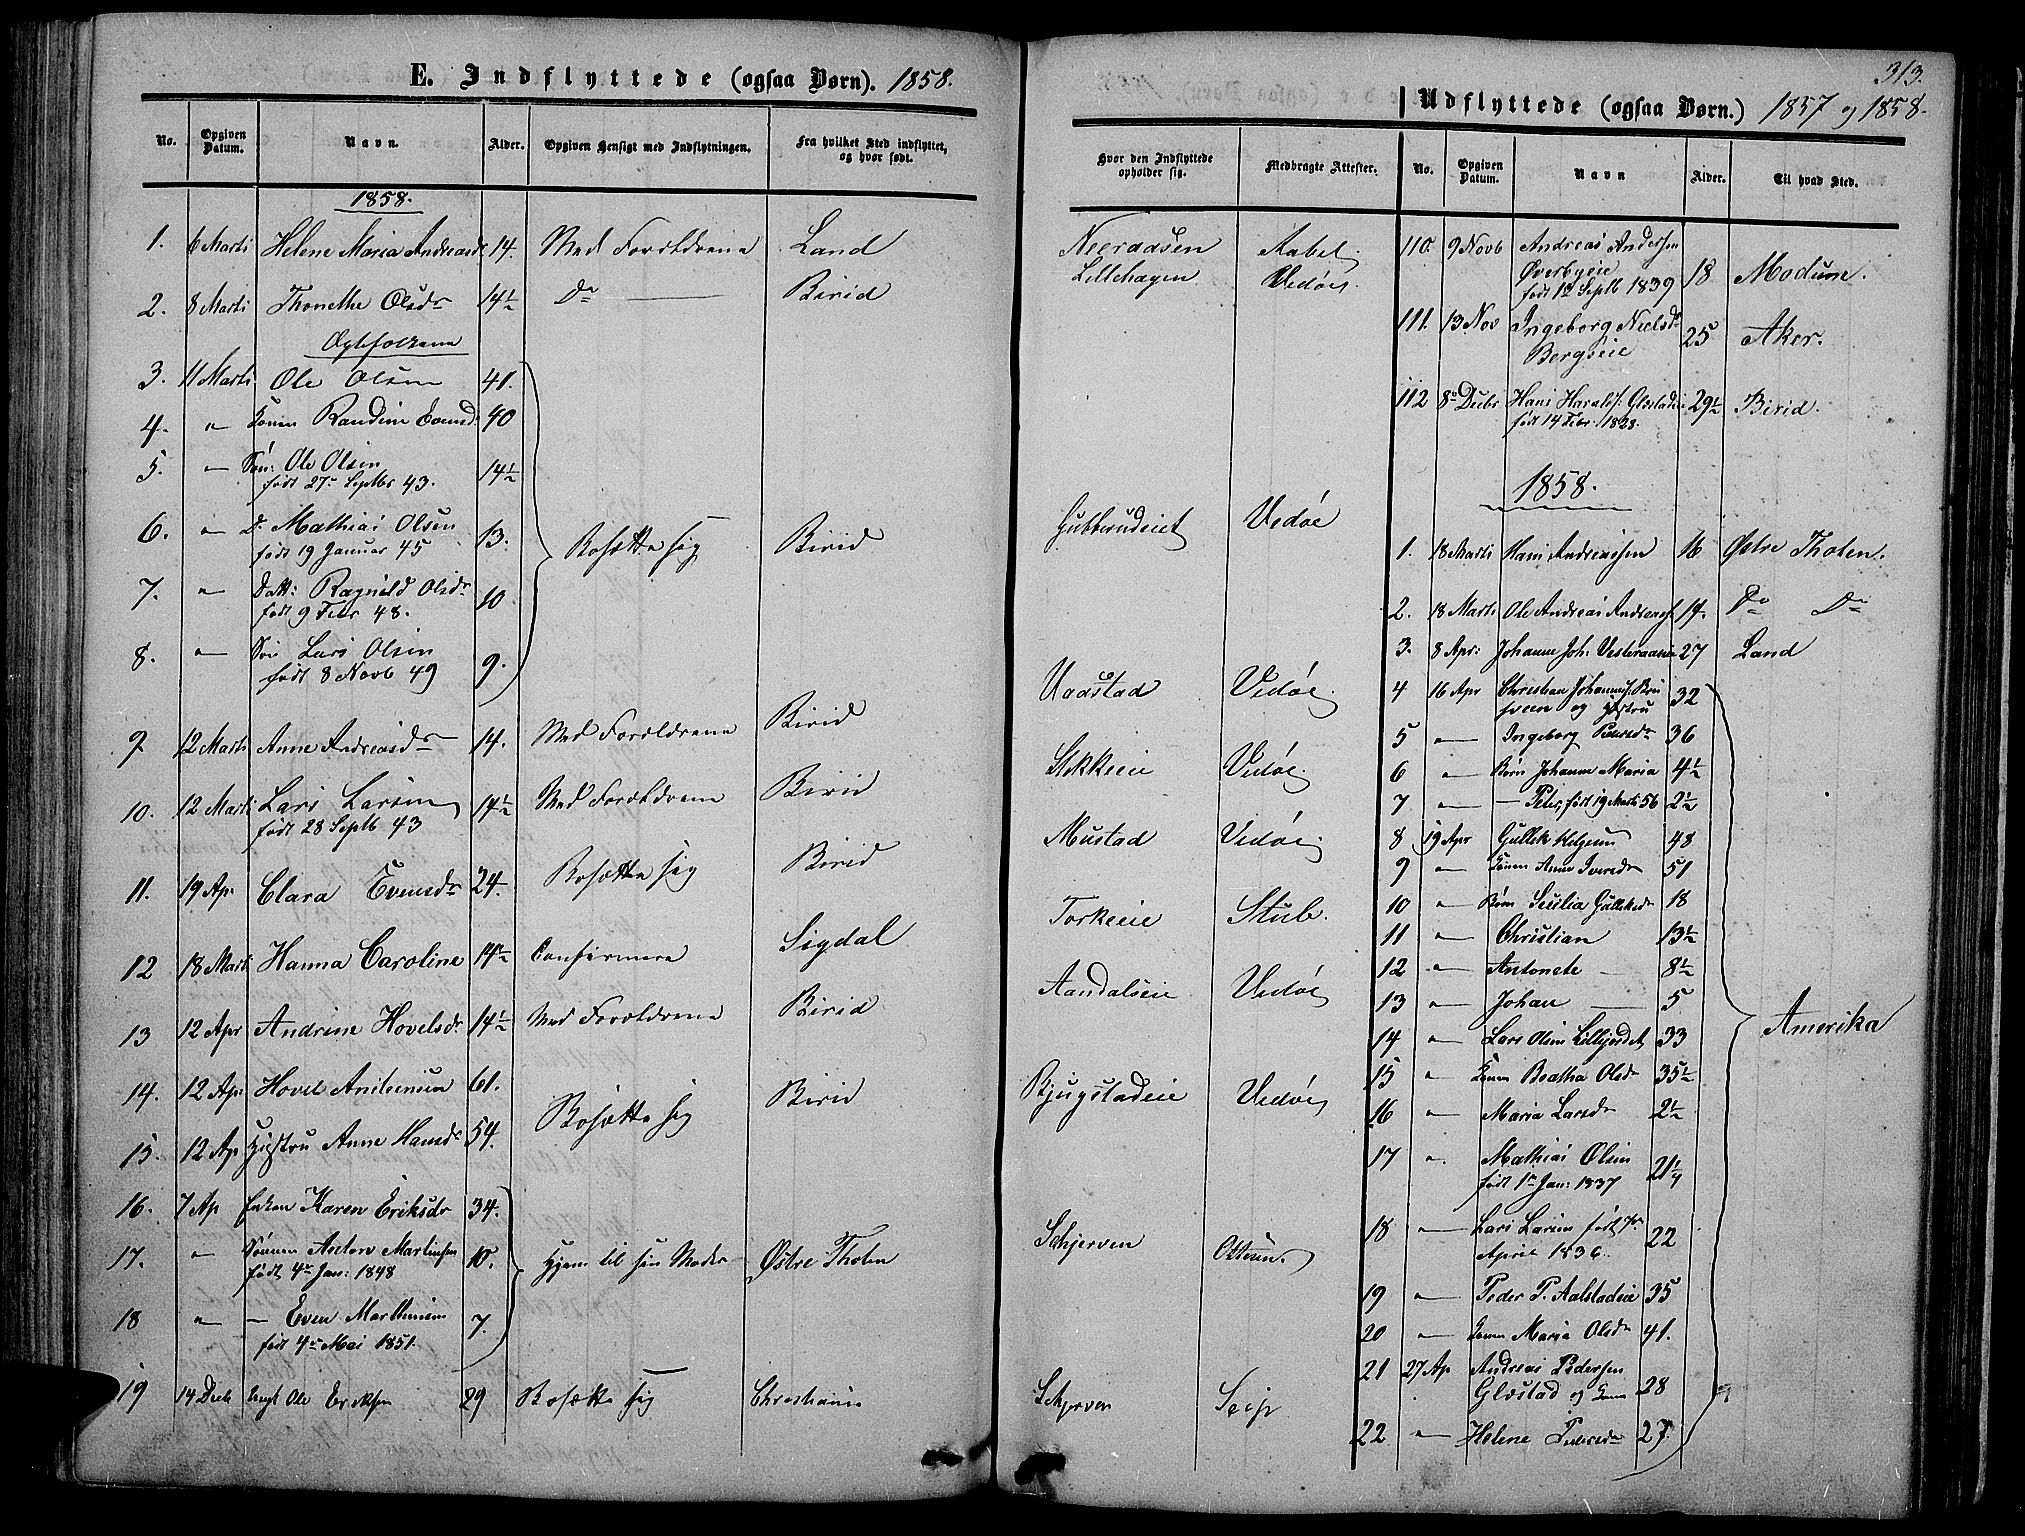 E. Indflyttede (ogsaa Børn). 1858.
No.
Opgiven Datum.
Navn.
Alder.
Opgiven Hensigt med Indflytningen.
Fra hvilket Sted indflyttet, og hvor født.
1858.
1. 6 Marti Helene Maria Andreasdr 14. Med Forældrene Land
2. 8 Marti Thonethe Olsdr 14½ Do — Birid
Ægtefolkene
3. 11 Marti Ole Olsen 41.
4. " Konen Randine Evensd. 40
5. " Søn: Ole Olsen 14½
født 27de Septbr 43.
6. " Do Mathias Olsen 13. Bosætte sig Birid
født 19 Januar 45
7. " Datt: Ragnild Olsdr 10
født 9 Febr 48.
8. " Søn Lars Olsen 9.
født 8 Novb 49
9. 12 Marti Anne Andreasdr 14. Med Forældrene Birid
10. 12 Marti Lars Larsen 14½ Med Forældrene Birid
født 28 Septb 43
11. 19 Ap. Clara Evensdr 24. Bosætte sig Birid
12 18 Marti Hanna Caroline 14½ Confirmere Sigdal
13 12 Apr Andrine Hovelsdr 14½ Med Forældrene Birid
14. 12 Ap. Hovel 61. Bosætte sig Birid
15. 12 Ap Hustru Anne Hansdr 54.
16. 7 Ap Enken Karen Eriksdr 34.
17. " Sønnen Anton Martinsen 10. Hjem til sin Moder Østre Thoten
født 4de Jan: 1848
18 " — Even Marthinsen 7.
født 4de Mai 1851.
19 14 Decb Ungk Ole Eriksen 29 Bosætte sig Christiania
313.
Udflyttede (ogsaa Børn.) 1857 og 1858.
Hvor den Indflyttede opholder sig.
Medbragte Attester.
No.
Opgiven Datum.
Navn
Alder.
Til hvad Sted.
Neeraasen Aabel
Lillehagen Vedøe.
Gubberudeiet Vedøe
Vedøe.
Stikkeie Vedøe.
Mustad Vedøe
Torkeeie Stub.
Aandalseie Vedøe
Bjugstadeie Vedøe
Schjerven Ottesen.
Schjerven Seip
110. 9 Novb Andreas Andersen
Øverbyeie 18 Modum.
født 1ste Septb 1839
111. 13 Nov Ingeborg Nielsdr 25 Aker.
Bergseie
112 8de Decbr Hans Haralds: Glæstadeie 29½ Birid.
født 14 Febr. 1828.
1858.
1. 18 Marti Hans Andreassen 16 Østre Thoten.
2. 18 Marti Ole Andreas Andreass. 14. Do Do
3. 8 Apr: Johanne Joh: Vesteraasen 27 Land
4 16 Apr Christian Johannes. Bru 32
sveen og Hustru
5 " Ingeborg Pedersdr 36
6 " Børn Johanne Maria 4½
7 " — Peter, født 19 Marti 56 2½
8 19 Apr Gullek Helgesen 48
9 " Konen Anne Iversdr 51
10 " Børn Secilia Gulleksdr 18
11 " Christian 13½
12 " Antonete 8½
13 " Johan 5 Amerika
14 " Lars Olsen Lillejordet 33
15 " Konen Beatha Olsdr 35½
16 " Maria Larsdr 2½
17 " Mathias Olsen 21¼
født 1ste Jan: 1837
18 " Lars Larsen født 22
April 1836.
19 " Peder P. Aalstadeie 35
20 " Konen Maria Olsdr 41.
21 27 Ap Andreas Pedersen
Glæstad og Kone 28
22 " Helene Pedersdr 27.